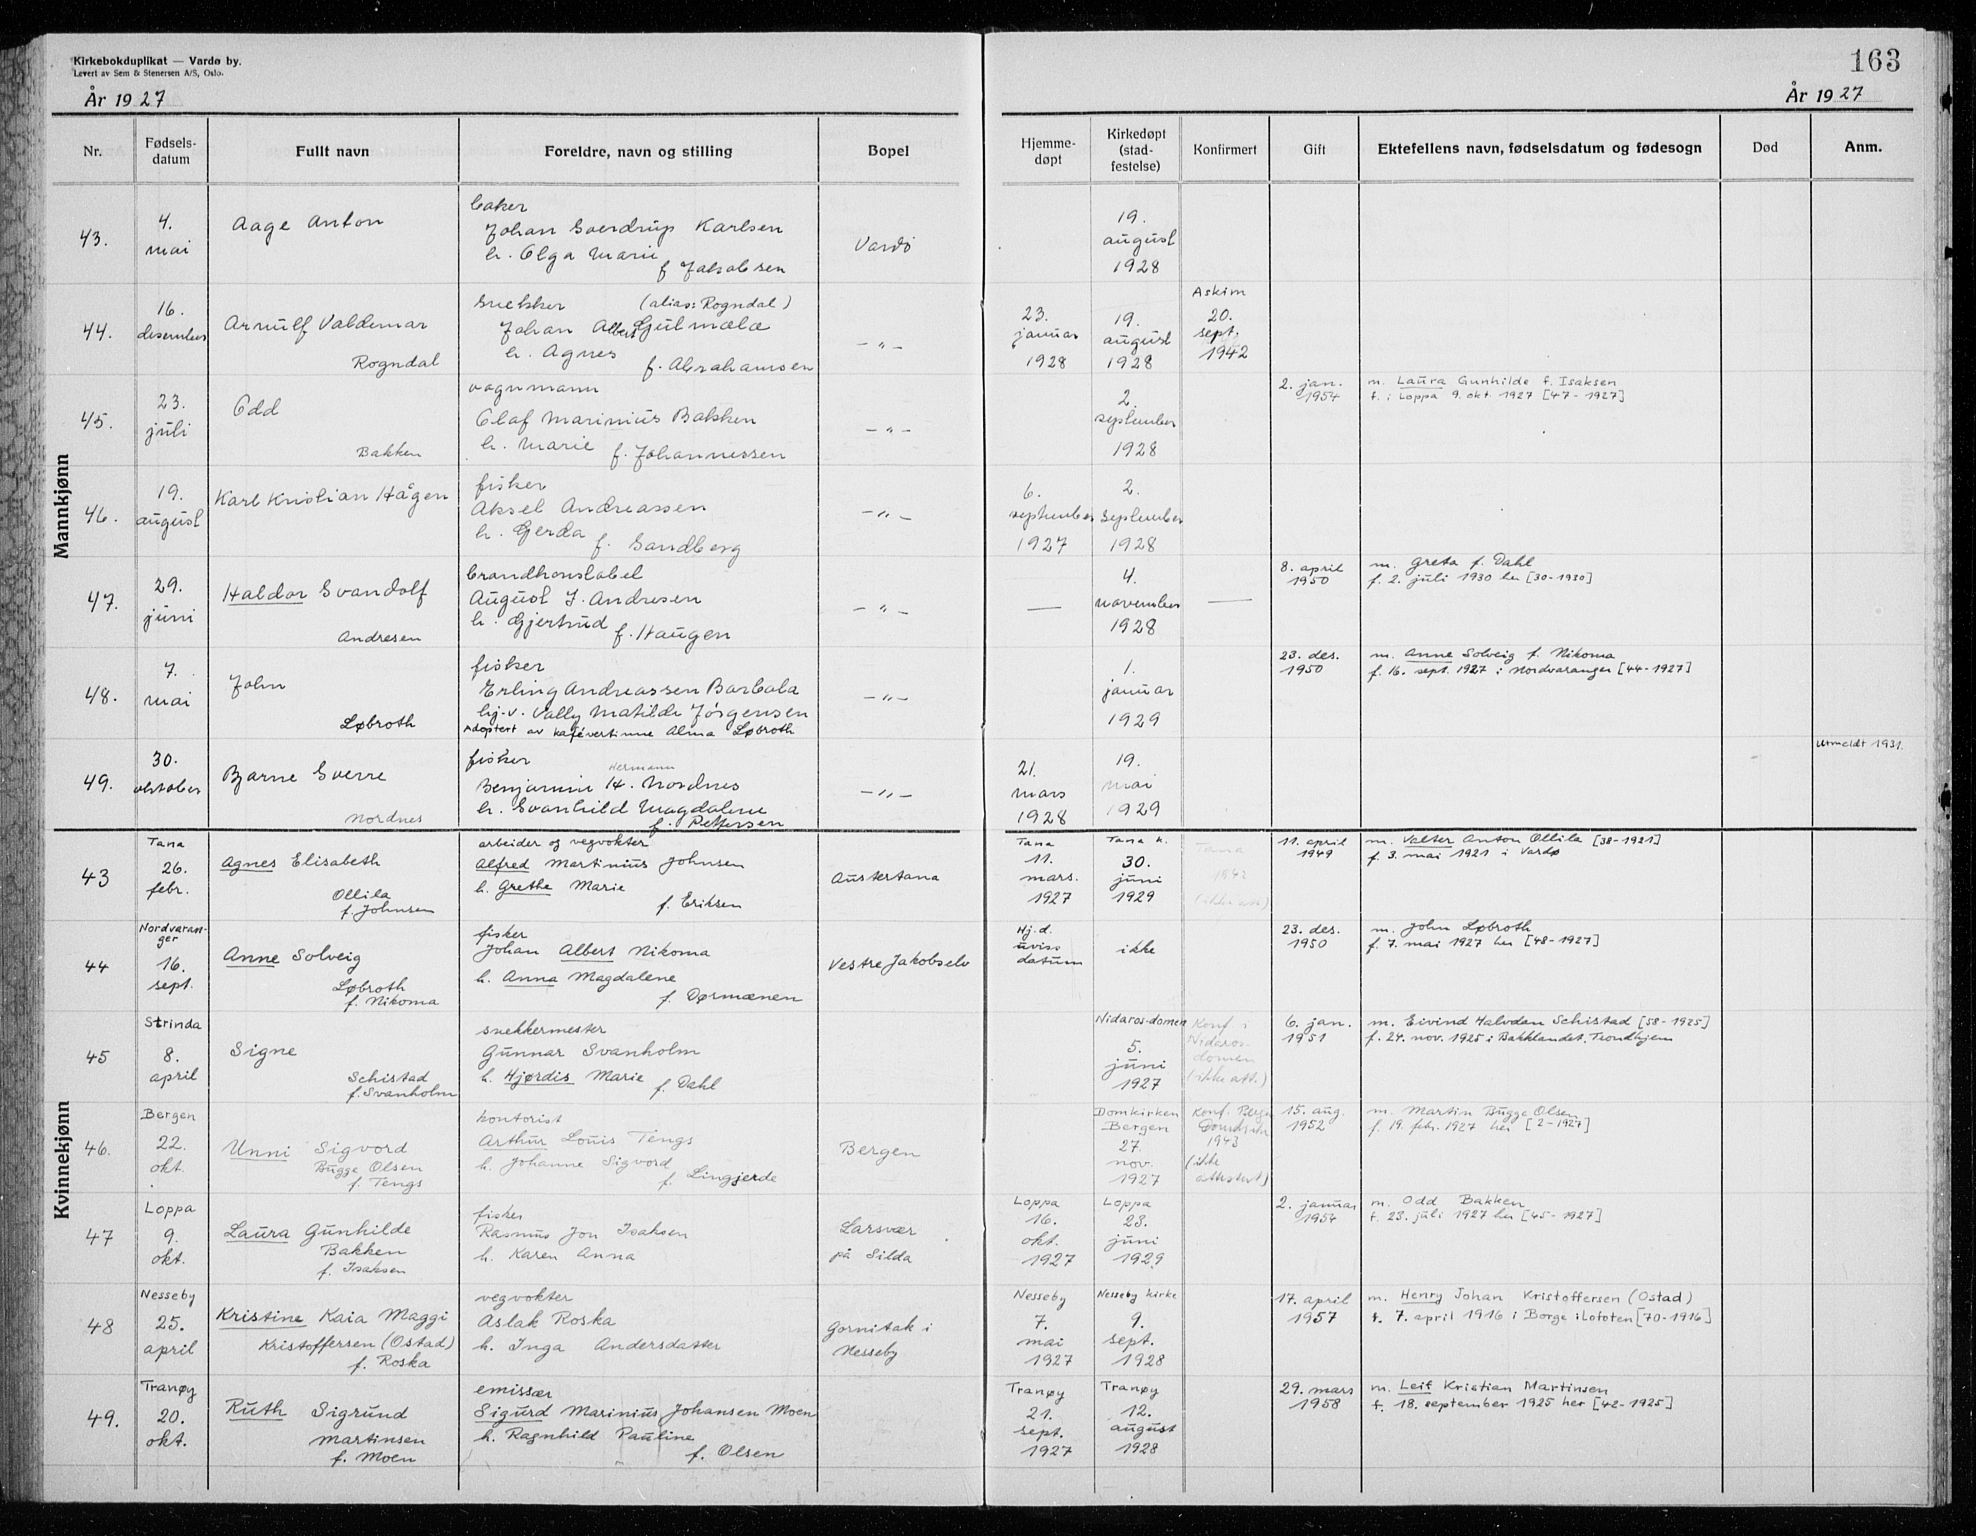 Kirkebokduplikat — Vardø by.
Levert av Sem & Stenersen A/S, Oslo.
163
År 1927
År 1927
Nr.
Fødsels-
datum
Fullt navn
Foreldre, navn og stilling
Bopel
Hjemme-
døpt
Kirkedøpt
(stad-
festelse)
Konfirmert
Gift
Ektefellens navn, fødselsdatum og fødesogn
Død
Anm.
Mannkjønn
43.
4.
mai
Aage Anton
baker
Johan Sverdrup Karlsen
h. Olga Marie
f. Jakobsen
Vardø
19.
august
1928
44.
16.
desember
Arnulf Valdemar
Rogndal
snekker (alias: Rogndal)
Johan Albert Gjulmælæ
h. Agnes
f. Abrahamsen
—"—
23.
januar
1928
19.
august
1928
Askim
20.
sept.
1942
45.
23.
juli
Odd
Bakken
vognmann
Olaf Marinius Bakken
h. Marie
f. Johannessen
—"—
2.
september
1928
2. jan.
1954
m. Laura Gunhilde f. Isaksen
f. i Loppa 9. okt. 1927 [47-1927]
46.
19.
august
Karl Kristian Hågen
fisker
Aksel Andreassen
h. Gerda
f. Sandberg
—"—
6.
september
1927
2.
september
1928
47.
29.
juni
Haldor Svandolf
Andresen
brandkonstabel
August J. Andresen
h. Gjertrud
f. Haugen
—"—
—
4.
november
1928
—
8. april
1950
m. Greta f. Dahl
f. 2. juli 1930 her [30-1930]
48.
7.
mai
John
Løbroth
fisker
Erling Andreassen Barbala
ug.v. Vally Matilde Jørgensen
Adoptert av kafévertinne Alma Løbroth
—"—
1.
januar
1929
23. des.
1950
m. Anne Solveig f. Nikoma
f. 16. sept. 1927 i Nordvaranger [44-1927]
49.
30.
oktober
Bjarne Sverre
Nordnes
fisker
Hermann
Benjamin H. Nordnes
h. Svanhild Magdalene
f. Pettersen
—"—
21.
mars
1928
19.
mai
1929
Utmeldt 1931.
Kvinnekjønn
43
Tana
26.
febr.
Agnes Elisabeth
Ollila
f. Johnsen
arbeider og vegvokter
Alfred Martinius Johnsen
h. Grethe Marie
f. Eriksen
Austertana
Tana
11.
mars.
1927
Tana k.
30.
juni
1929
Tana
1942
(ikke att.)
11. april
1949
m. Valter Anton Ollila [38-1921]
f. 3. mai 1921 i Vardø
44
Nordvaran-
ger
16.
sept.
Anne Solveig
Løbroth
f. Nikoma
fisker
Johan Albert Nikoma
h. Anna Magdalene
f. Dørmænen
Vestre Jakobselv
Hj.d.
uviss
datum
ikke
23. des.
1950
m. John Løbroth
f. 7. mai 1927 her [48-1927]
45
Strinda
8.
april
Signe
Schistad
f. Svanholm
snekkermester
Gunnar Svanholm
h. Hjørdis Marie
f. Dahl
Nidaros-domen
5.
juni
1927
Konf. i
Nidaros-
domen
(ikke att.)
6. jan.
1951
m. Eivind Halvdan Schistad [58-1925]
f. 24. nov. 1925 i Bakklandet, Trondhjem
46.
Bergen
22.
okt.
Unni Sigvord
Bugge Olsen
f. Tengs
kontorist
Arthur Louis Tengs
h. Johanne Sigvord
f. Lingjerde
Bergen
Domkirken
Bergen
27.
nov.
1927
Konf. Bergen
1943
(ikke
attestert)
15. aug.
1952
m. Martin Bugge Olsen
f. 19. febr. 1927 her [2-1927]
47
Loppa
9.
okt.
Laura Gunhilde
Bakken
f. Isaksen
fisker
Rasmus Jon Isaksen
h. Karen Anna
Larsvær
på Silda
Loppa
16.
okt.
1927
Loppa
23.
juni
1929
2. januar
1954
m. Odd Bakken
f. 23. juli 1927 her [45-1927]
48
Nesseby
25.
april
Kristine Kaia Maggi
Kristoffersen (Ostad)
f. Roska
vegvokter
Aslak Roska
h. Inga Andersdatter
Gornitak i
Nesseby
Nesseby
7.
mai
1927
Nesseby kirke
9.
sept.
1928
17. april
1957
m. Henry Johan Kristoffersen (Ostad)
f. 7. april 1916 i Borge i Lofoten [70-1916]
49.
Tranøy
20.
okt.
Ruth Sigrund
Martinsen
f. Moen
emissær
Sigurd Marinius Johansen Moen
h. Ragnhild Pauline
f. Olsen
Tranøy
21.
sept.
1927
Tranøy
12.
august
1928
29. mars
1958
m. Leif Kristian Martinsen
f. 18. september 1925 her [42-1925]